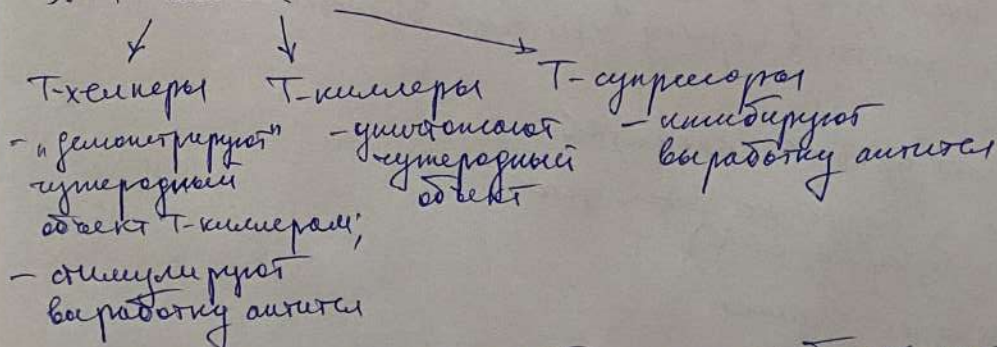 Т-хелперы
- „демонстрируют"
чужеродный
объект Т-киллерам;
- стимулируют
выработку антител
Т-киллеры
- уничтожают
чужеродный
объект
Т-супрессоры
- ингибируют
выработку антител